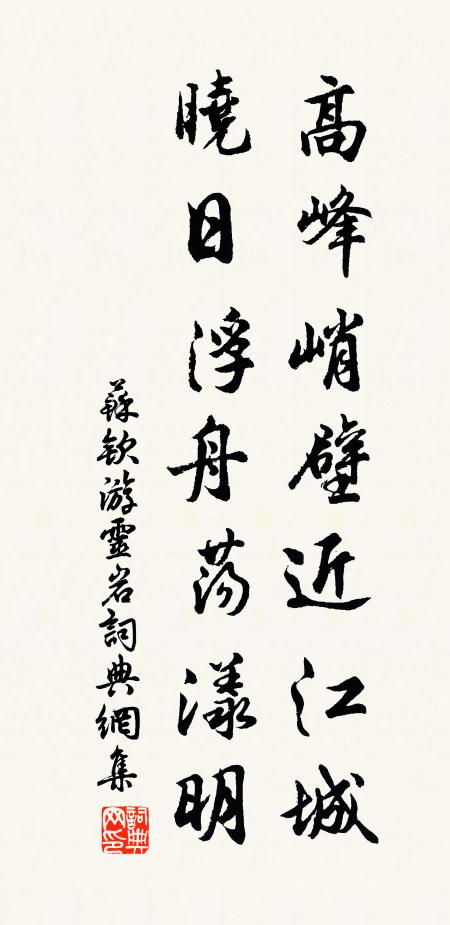 高峰峭壁近江城
曉日浮舟蕩漾明
蘇欽游靈岩詞典網集
詞典網印